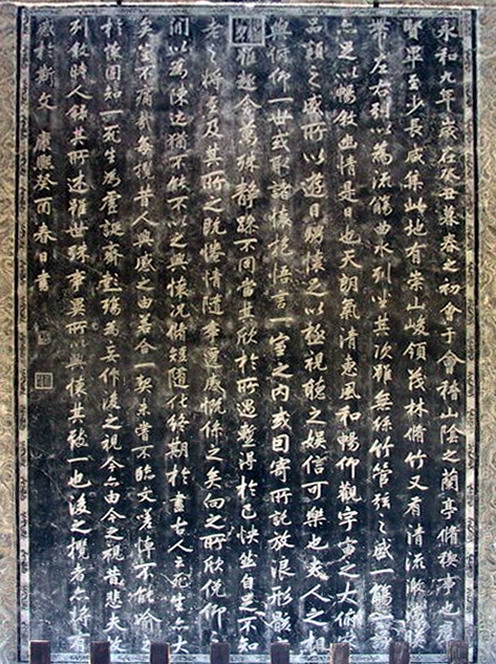 永和九年歲在癸丑暮春之初會于會稽山陰之蘭亭脩稧事也羣
賢畢至少長咸集此地有崇山峻領茂林脩竹又有清流激湍暎
帶左右引以為流觴曲水列坐其次雖無絲竹管弦之盛一觴一詠
亦足以暢敘幽情是日也天朗氣清惠風和暢仰觀宇宙之大俯察
品類之盛所以遊目騁懷足以極視聽之娛信可樂也夫人之相
與俯仰一世或取諸懷抱悟言一室之內或因寄所託放浪形骸
雖趣舍萬殊靜躁不同當其欣於所遇蹔得於己快然自足不知
老之將至及其所之既惓情隨事遷感慨係之矣向之所欣俛仰之
間以為陳迹猶不能不以之興懷況脩短隨化終期於盡古人云死生亦大
矣豈不痛哉每攬昔人興感之由若合一契未嘗不臨文嗟悼不能喻之
於懷固知一死生為虛誕齊彭殤為妄作後之視今亦由今之視昔悲夫故
列敘時人錄其所述雖世殊事異所以興懷其致一也後之攬者亦將有
感於斯文 康熙癸酉春日書